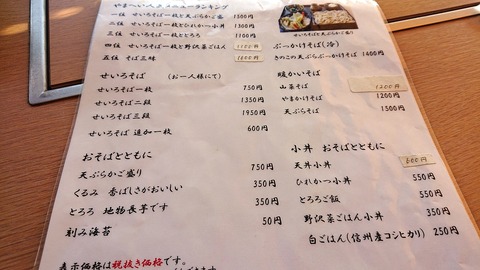 やまへい人気メニューランキング
一位 せいろそば一枚と天ぷらかご盛り 1500円
二位 せいろそば一枚とひれかつ小丼 1300円
三位 せいろそば一枚ととろろ 1100円
四位 せいろそば一枚と野沢菜ごはん 1100円
五位 そば三昧 1800円
せいろそば (お一人様にて)
せいろそば一枚 750円
せいろそば二段 1350円
せいろそば三段 1950円
せいろそば 追加一枚 600円
おそばとともに
天ぷらかご盛り 750円
くるみ 香ばしさがおいしい 350円
とろろ 地物長芋です 350円
刻み海苔 50円
表示価格は税抜き価格です。
せいろそばと天ぷらかご盛り
ぶっかけそば(冷)
きのこの天ぷらぶっかけそば 1400円
暖かいそば
山菜そば 1200円
やまかけそば 1200円
天ぷらそば 1500円
小丼 おそばとともに
天丼小丼 600円
ひれかつ小丼 550円
とろろご飯 550円
野沢菜ごはん小丼 350円
白ごはん(信州産コシヒカリ) 250円